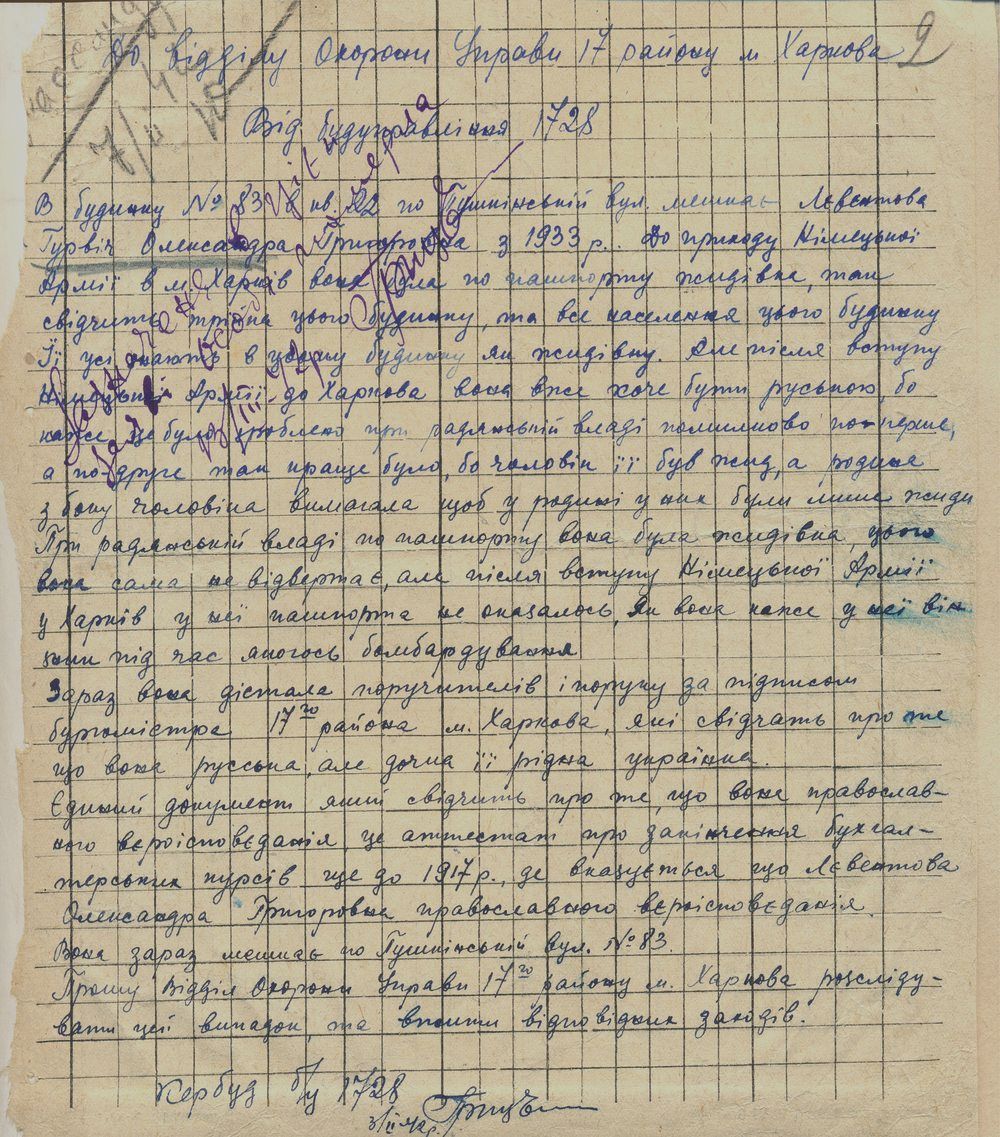 9
До відділу Охорони Управи 17 району м Харкова
7/II 42
Від будуправління 1728
В будинку № 83 кв. 22 по Пушкінській вул. мешкає Лєвентова
Гурвіч Олександра Григоровна з 1933 р.. До приходу Німецької
Армії в м. Харків вона була по пашпорту жидівка, так
свідчить трійка цього будинку, та все населення цього будинку
Її усі знають в цьому будинку як жидівку. Але після вступу
Німецької Армії до Харкова вона вже хоче бути руською, бо
каже це було зроблено при радянській владі помилково по-перше,
а по-друге так краще було, бо чоловік її був жид, а родина
з боку чоловіка вимагала щоб у родині у них були лише жиди
При радянській владі по пашпорту вона була жидівка, цього
вона сама не відвертає, але після вступу Німецької Армії
у Харків у неї пашпорта не оказалось, Як вона каже у неї він
зник під час якогось бомбардування
Зараз вона дістала поручителів і поруку за підписом
бургомістра 17го района м. Харкова, які свідчать про те
що вона русська, але дочка її рідна українка.
Єдиний документ який свідчить про те, що вона православ-
ного вєроісповєданія, це аттестат про закінчення бухгал-
терських курсів ще до 1917 р., де вказується що Лєвентова
Олександра Григоровна православного вєроісповєданія.
Вона зараз мешкає по Пушкінській вул. № 83.
Прошу Відділ Охорони Управи 17го району м. Харкова розсліду-
вати цей випадок, та вжити відповідних заходів.
Кербуд б/у 1728
3/II 42р.